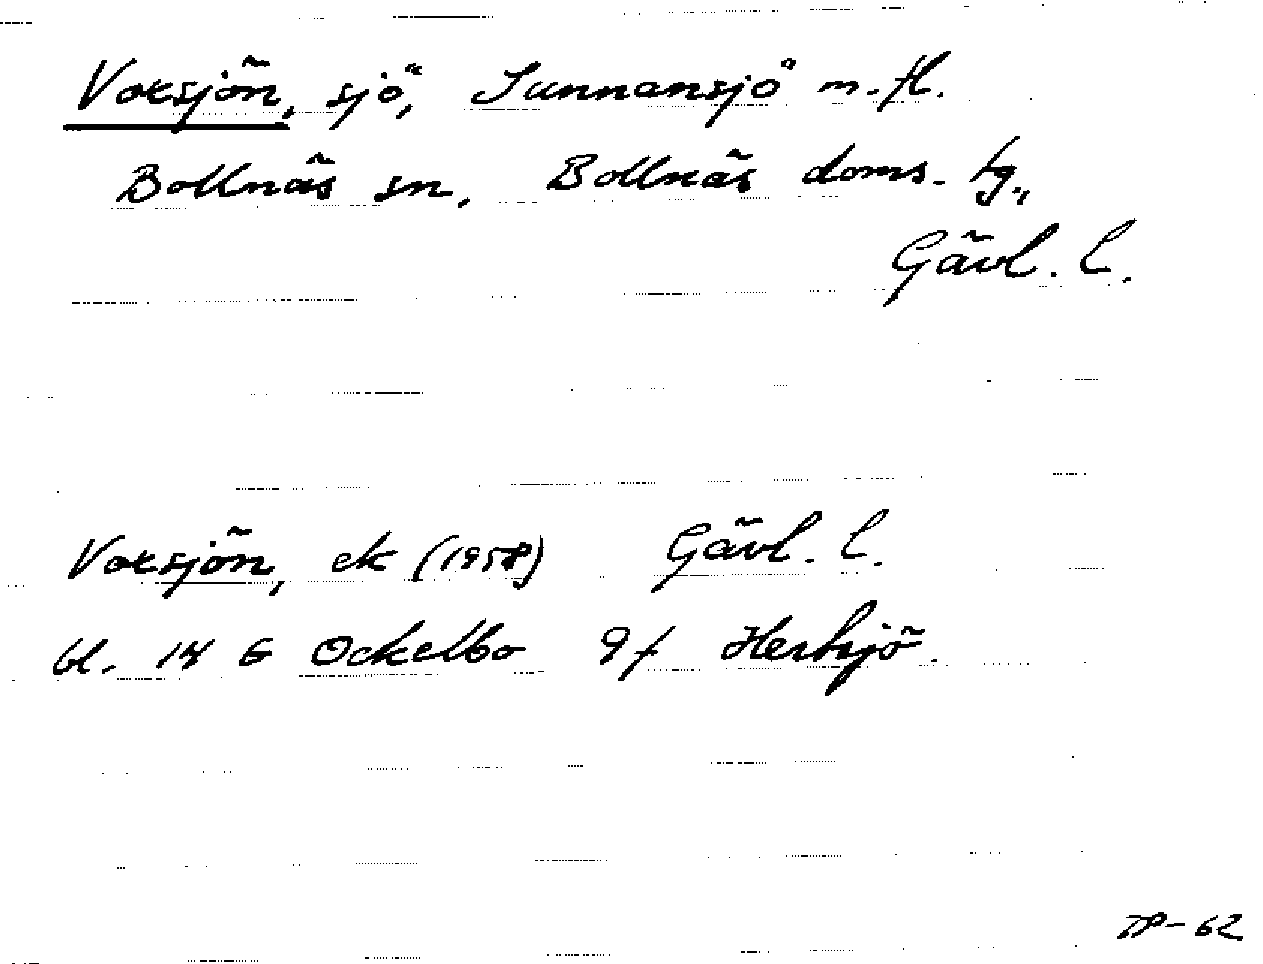 Voxsjön, sjö, Sunnansjö m.fl.
Bollnäs sn, Bollnäs doms. tg.,
Gävl. l.
Voxsjön, ek (1958) Gävl. l.
bl. 14 G Ockelbo 9f Hertesjö.
TP-62